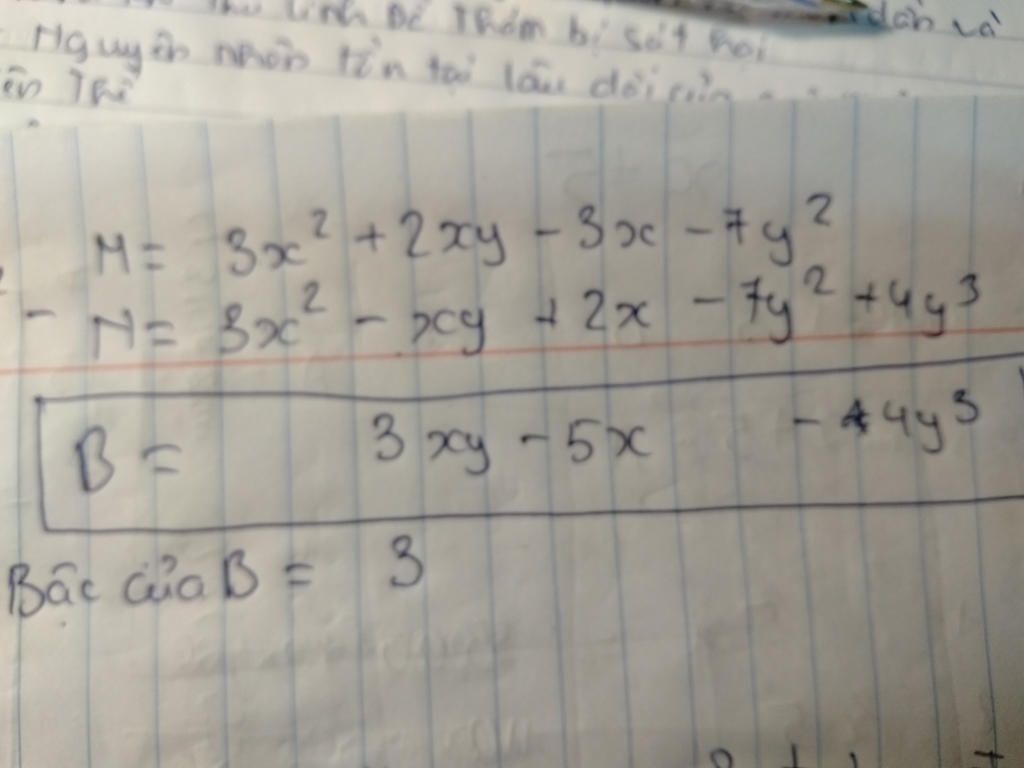 lĩnh Đề Thám bị sát hại
dân và
Nguyên nhân tồn tại lâu dài của
ên Thế
M = 3x² + 2xy - 3x - 7y²
- N = 3x² - xy + 2x - 7y² + 4y³
B = 3xy - 5x - 4y³
Bậc của B = 3